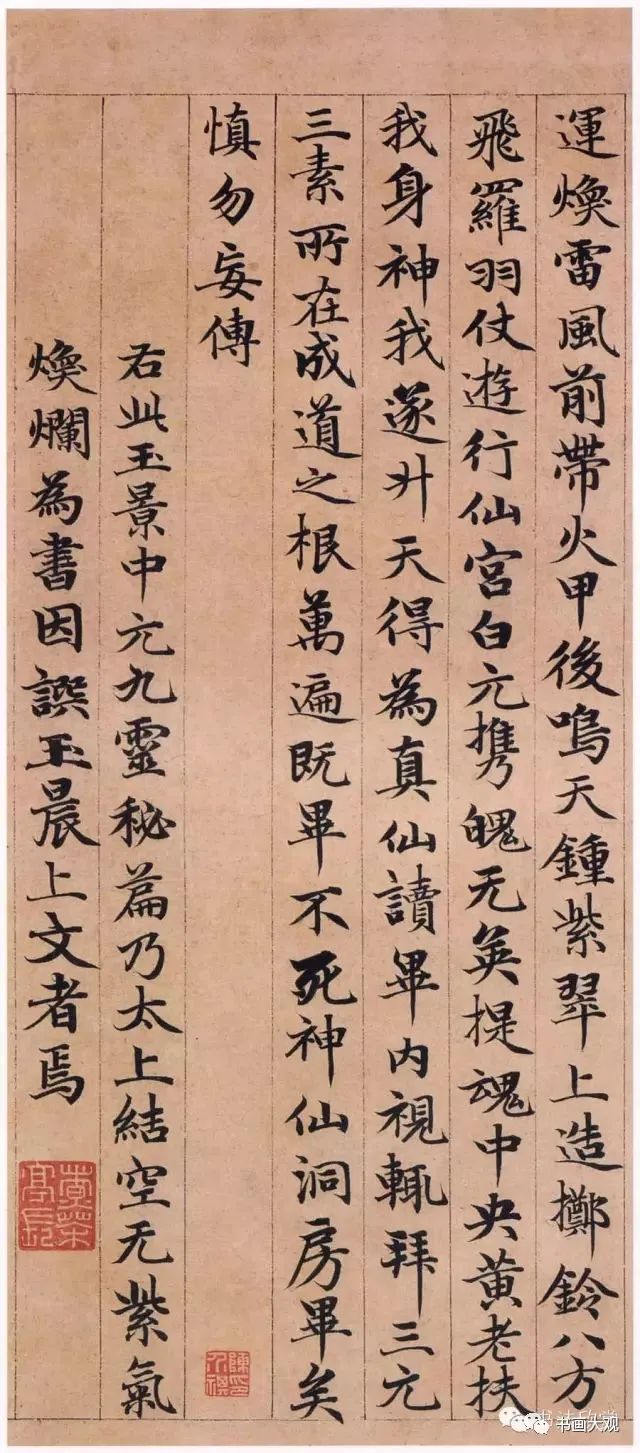 運煥雷風前帶火甲後嗚天鍾紫翠上造擲鈴八方
飛羅羽仗遊行仙宮白元携魄无英提魂中央黃老扶
我身神我遂升天得為真仙讀畢內視輒拜三元
三素所在成道之根萬遍既畢不死神仙洞房畢矣
慎勿妄傳
右此玉景中元九靈秘篇乃太上結空无紫氣
煥爛為書因譔玉晨上文者焉
书法欣赏
书画大观